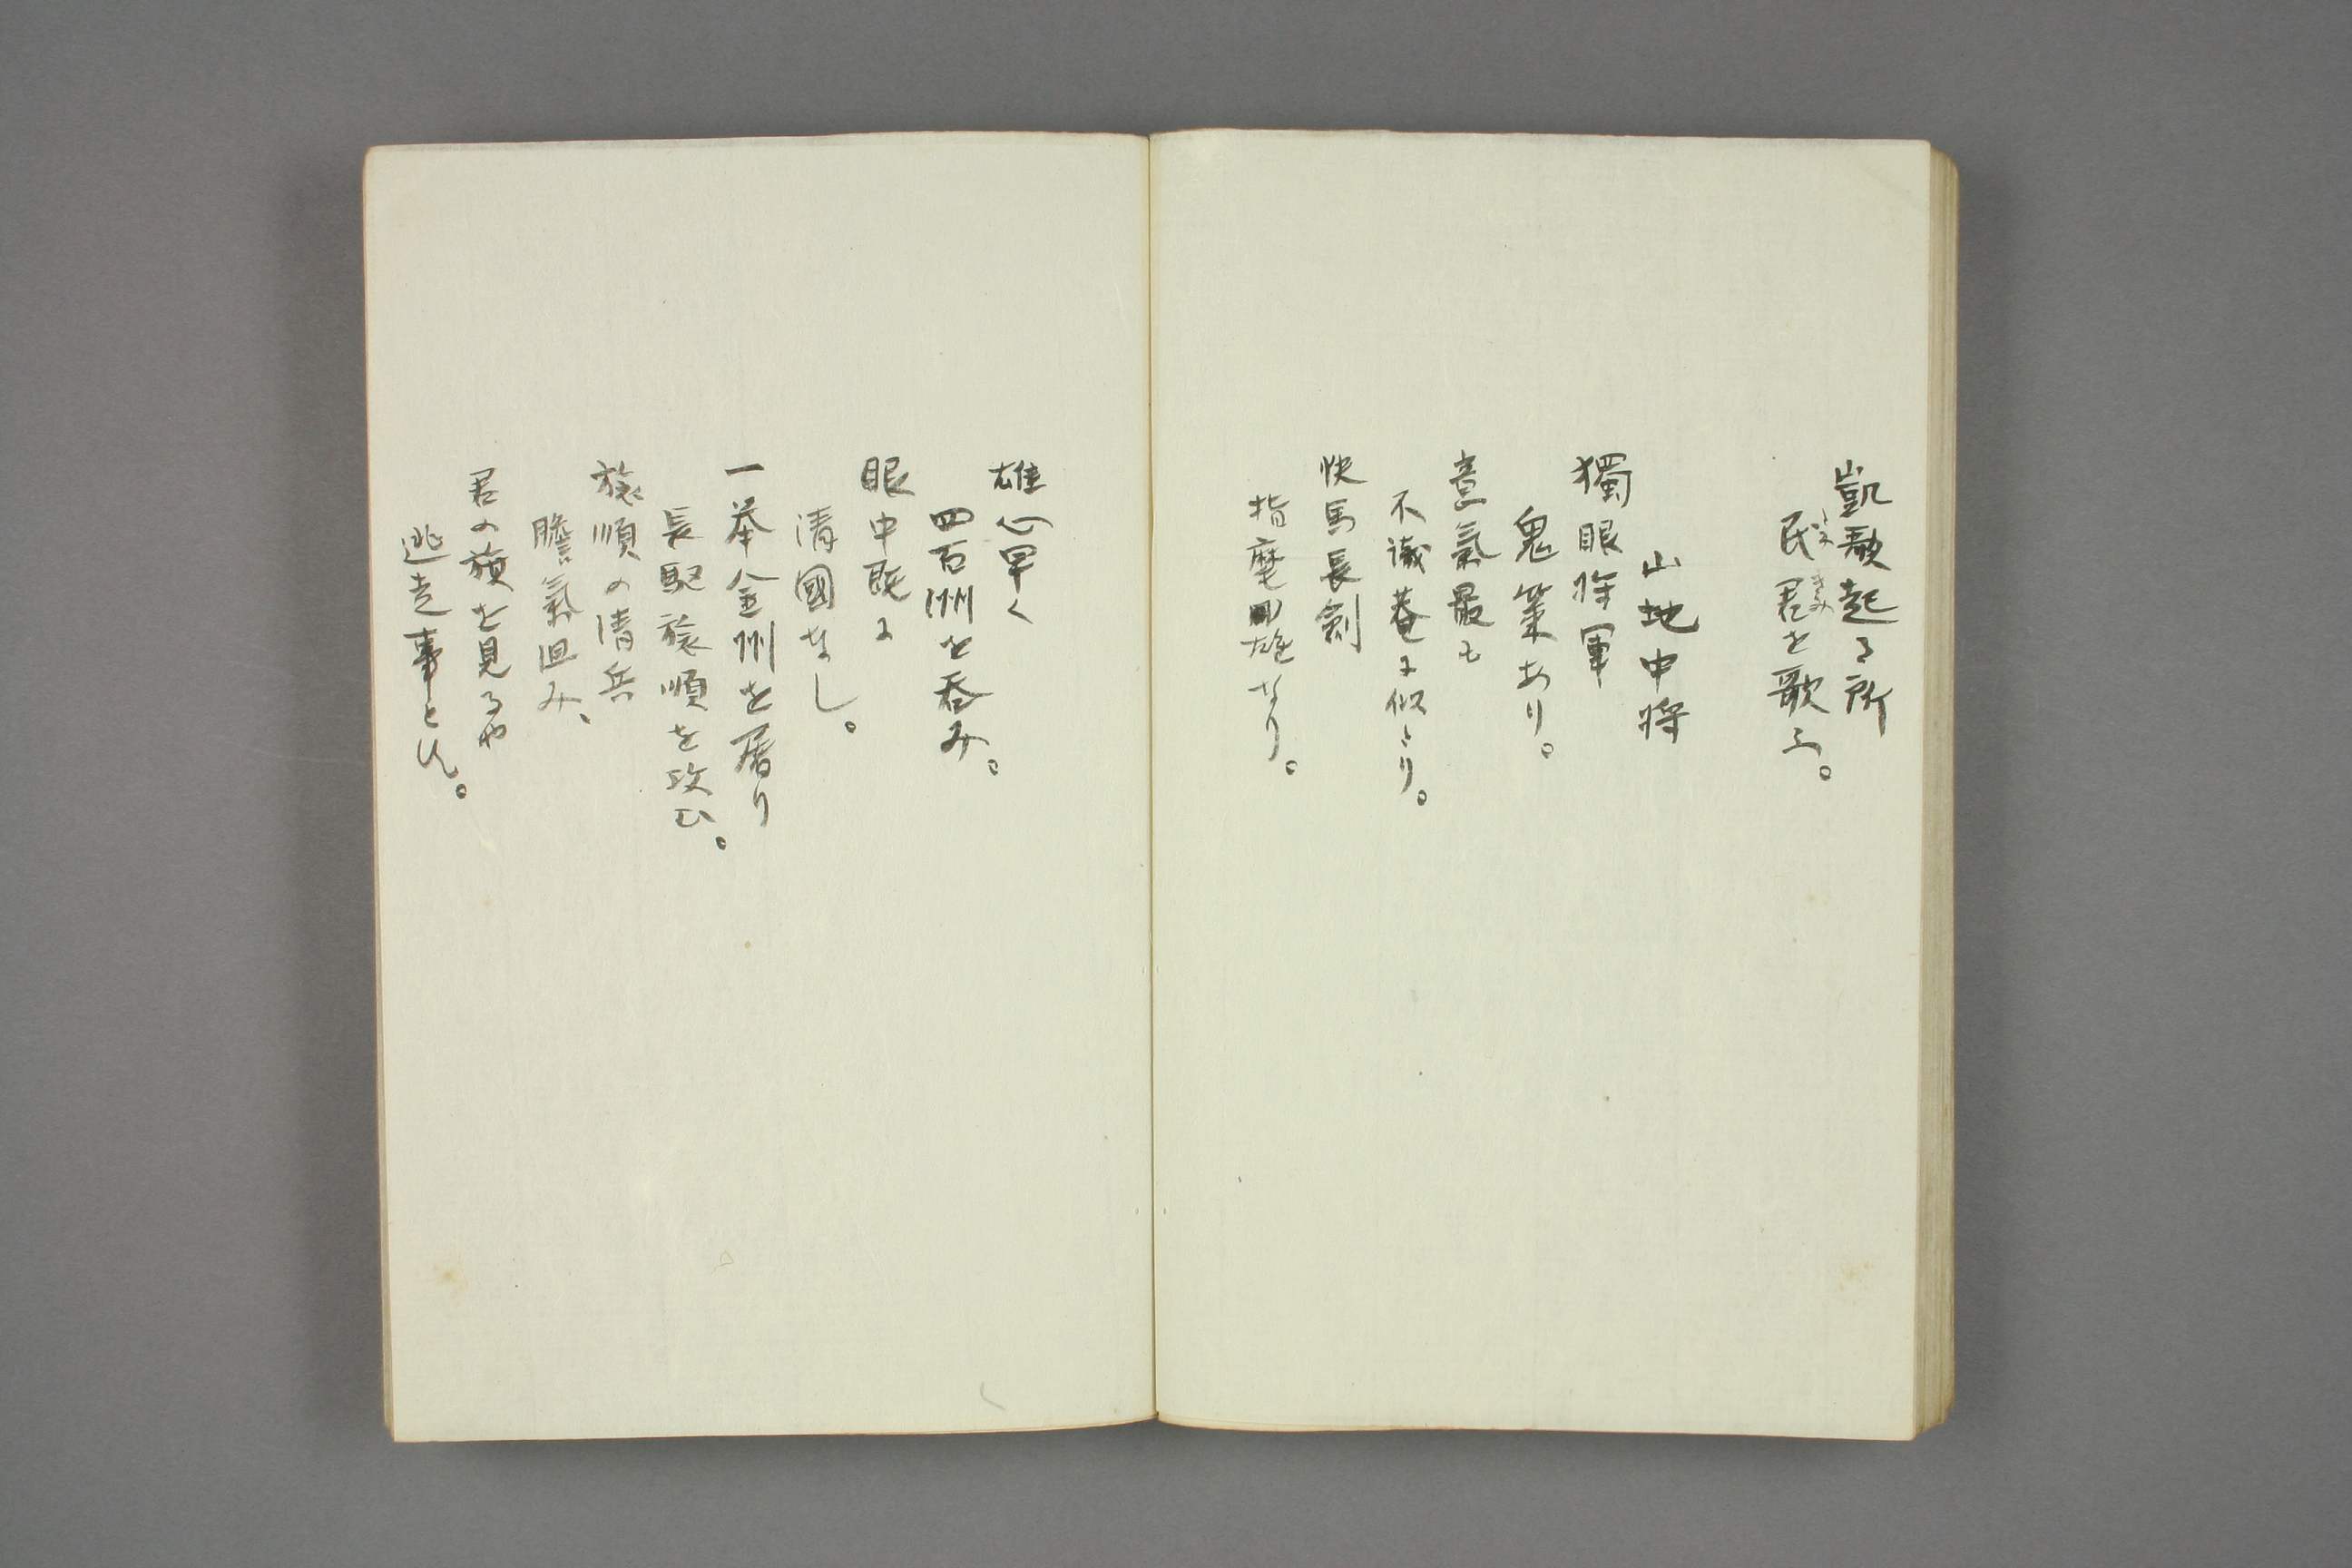 凱歌起る所
民君を歌ふ。
たみ
きみ
山地中将
獨眼将軍
鬼策あり。
意氣最も
不識菴に似たり。
快馬長劍
指麾雄なり。
雄心早く
四百州を呑み。
眼中既に
清國なし。
一挙金州を屠り
長駆旅順を攻む。
旅順の清兵
膽氣
み、
君の旗を見るや
逃走事とせん。